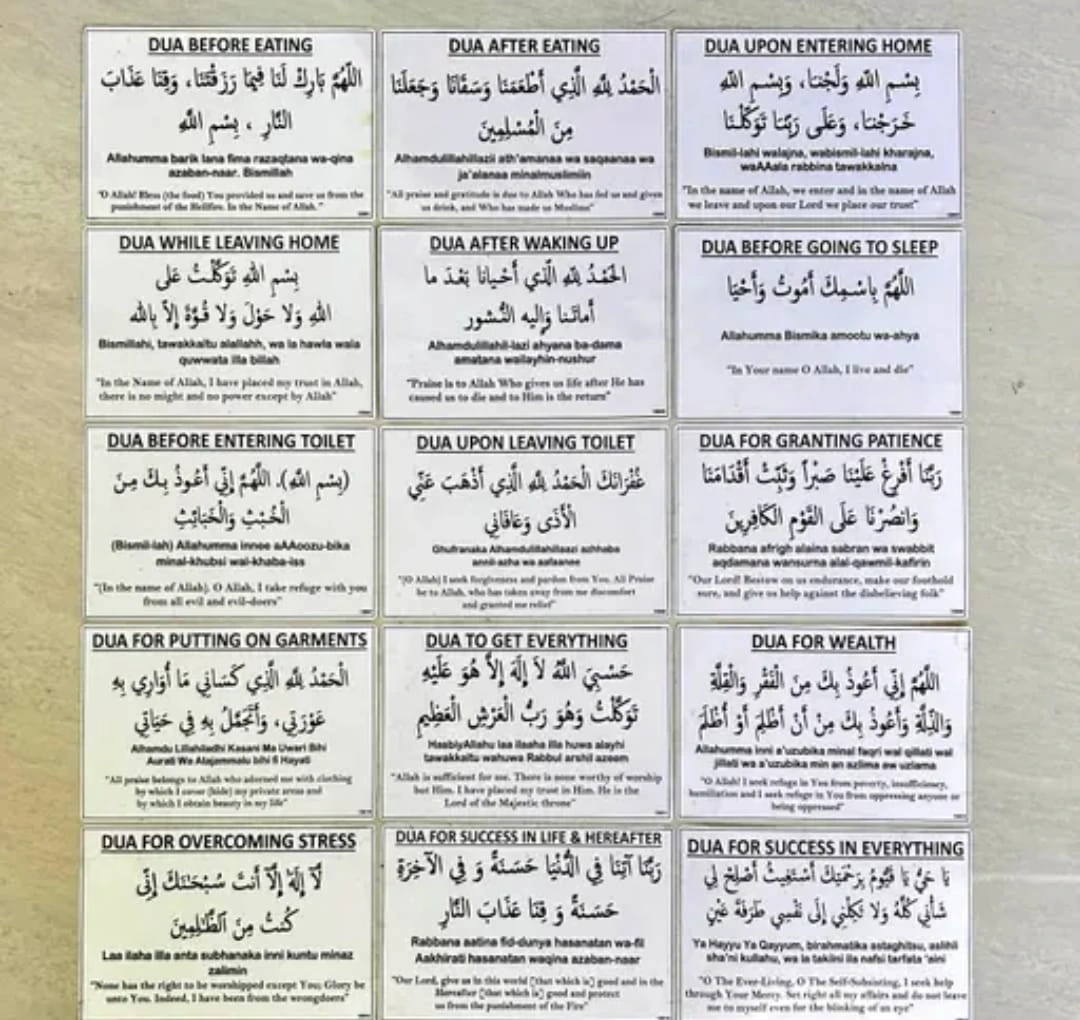 DUA BEFORE EATING
اللَّهُمَّ بَارِكْ لَنَا فِيمَا رَزَقْتَنَا، وَقِنَا عَذَابَ
النَّارِ ، بِسْمِ اللَّهِ
Allahumma barik lana fima razaqtana wa-qina
azaban-naar. Bismillah
"O Allah! Bless (the food) You provided us and save us from the
punishment of the Hellfire. In the Name of Allah."
DUA AFTER EATING
الْحَمْدُ لِلَّهِ الَّذِي أَطْعَمَنَا وَسَقَانَا وَجَعَلَنَا
مِنَ الْمُسْلِمِينَ
Alhamdulillahillazii ath'amanaa wa saqaanaa wa
ja'alanaa minalmuslimiin
"All praise and gratitude is due to Allah Who has fed us and given
us drink, and Who has made us Muslims"
DUA UPON ENTERING HOME
بِسْمِ اللَّهِ وَلَجْنَا، وَبِسْمِ اللَّهِ
خَرَجْنَا، وَعَلَى رَبِّنَا تَوَكَّلْنَا
Bismil-lahi walajna, wabismil-lahi kharajna,
waAAala rabbina tawakkalna
"In the name of Allah, we enter and in the name of Allah
we leave and upon our Lord we place our trust"
DUA WHILE LEAVING HOME
بِسْمِ اللهِ تَوَكَّلْتُ عَلى
اللهِ وَلا حَوْلَ وَلا قُوَّةَ إِلاّ بِالله
Bismillahi, tawakkaltu alallahh, wa la hawla wala
quwwata illa billah
"In the Name of Allah, I have placed my trust in Allah,
there is no might and no power except by Allah"
DUA AFTER WAKING UP
الحَمْدُ لِلّهِ الَّذي أَحْيانا بَعْدَ ما
أَماتَنا وَإليه النُّشور
Alhamdulillahil-lazi ahyana ba-dama
amatana wailayhin-nushur
"Praise is to Allah Who gives us life after He has
caused us to die and to Him is the return"
DUA BEFORE GOING TO SLEEP
اللَّهُمَّ بِاسْمِكَ أَمُوتُ وَأَحْيَا
Allahumma Bismika amootu wa-ahya
"In Your name O Allah, I live and die"
DUA BEFORE ENTERING TOILET
(بِسْمِ اللَّهِ). اللَّهُمَّ إِنِّي أَعُوذُ بِكَ مِنَ
الْخُبْثِ وَالْخَبَائِثِ
(Bismil-lah) Allahumma innee aAAoozu-bika
minal-khubsi wal-khaba-iss
"(In the name of Allah). O Allah, I take refuge with you
from all evil and evil-doers"
DUA UPON LEAVING TOILET
غُفْرَانَكَ الْحَمْدُ لِلَّهِ الَّذِي أَذْهَبَ عَنِّي
الْأَذَى وَعَافَانِي
Ghufranaka Alhamdulillahillaazi azhhaba
annil-azha wa aafaanee
"(O Allah) I seek forgiveness and pardon from You. All Praise
be to Allah, who has taken away from me discomfort
and granted me relief"
DUA FOR GRANTING PATIENCE
رَبَّنَا أَفْرِغْ عَلَيْنَا صَبْرًا وَثَبِّتْ أَقْدَامَنَا
وَانصُرْنَا عَلَى الْقَوْمِ الْكَافِرِينَ
Rabbana afrigh alaina sabran wa swabbit
aqdamana wansurna alal-qawmil-kafirin
"Our Lord! Bestow on us endurance, make our foothold
sure, and give us help against the disbelieving folk"
DUA FOR PUTTING ON GARMENTS
الْحَمْدُ لِلَّهِ الَّذِي كَسَانِي مَا أُوَارِي بِهِ
عَوْرَتِي، وَأَتَجَمَّلُ بِهِ فِي حَيَاتِي
Alhamdu Lillahiladhi Kasani Ma Uwari Bihi
Aurati Wa Atajammalu bihi fi Hayati
"All praise belongs to Allah who adorned me with clothing
by which I cover (hide) my private areas and
by which I obtain beauty in my life"
DUA TO GET EVERYTHING
حَسْبِيَ اللَّهُ لَا إِلَهَ إِلَّا هُوَ عَلَيْهِ
تَوَكَّلْتُ وَهُوَ رَبُّ الْعَرْشِ الْعَظِيمِ
HasbiyAllahu laa ilaaha illa huwa alayhi
tawakkaltu wahuwa Rabbul arshil azeem
"Allah is sufficient for me. There is none worthy of worship
but Him. I have placed my trust in Him. He is the
Lord of the Majestic throne"
DUA FOR WEALTH
اللَّهُمَّ إِنِّي أَعُوذُ بِكَ مِنَ الْفَقْرِ وَالْقِلَّةِ
وَالذِّلَّةِ وَأَعُوذُ بِكَ مِنْ أَنْ أَظْلِمَ أَوْ أُظْلَمَ
Allahumma inni a'uzubika minal faqri wal qillati wal
jillati wa a'uzubika min an azlima aw uzlama
"O Allah! I seek refuge in You from poverty, insufficiency,
humiliation and I seek refuge in You from oppressing anyone or
being oppressed"
DUA FOR OVERCOMING STRESS
لَّآ إِلَٰهَ إِلَّآ أَنتَ سُبْحَٰنَكَ إِنِّى
كُنتُ مِنَ ٱلظَّٰلِمِينَ
Laa ilaha illa anta subhanaka inni kuntu minaz
zalimin
"None has the right to be worshipped except You; Glory be
unto You. Indeed, I have been from the wrongdoers"
DUA FOR SUCCESS IN LIFE & HEREAFTER
رَبَّنَا آتِنَا فِي الدُّنْيَا حَسَنَةً وَ فِي الْآخِرَةِ
حَسَنَةً وَ قِنَا عَذَابَ النَّارِ
Rabbana aatina fid-dunya hasanatan wa-fil
Aakhirati hasanatan waqina azaban-naar
"Our Lord, give us in this world [that which is] good and in the
Hereafter [that which is] good and protect
us from the punishment of the Fire"
DUA FOR SUCCESS IN EVERYTHING
يَا حَيُّ يَا قَيُّومُ بِرَحْمَتِكَ أَسْتَغِيثُ أَصْلِحْ لِي
شَأْنِي كُلَّهُ وَلَا تَكِلْنِي إِلَى نَفْسِي طَرْفَةَ عَيْنٍ
Ya Hayyu Ya Qayyum, birahmatika astaghitsu, aslihli
sha'ni kullahu, wa la takilni ila nafsi tarfata 'aini
"O The Ever-Living, O The Self-Subsisting, I seek help
through Your Mercy. Set right all my affairs and do not leave
me to myself even for the blinking of an eye"